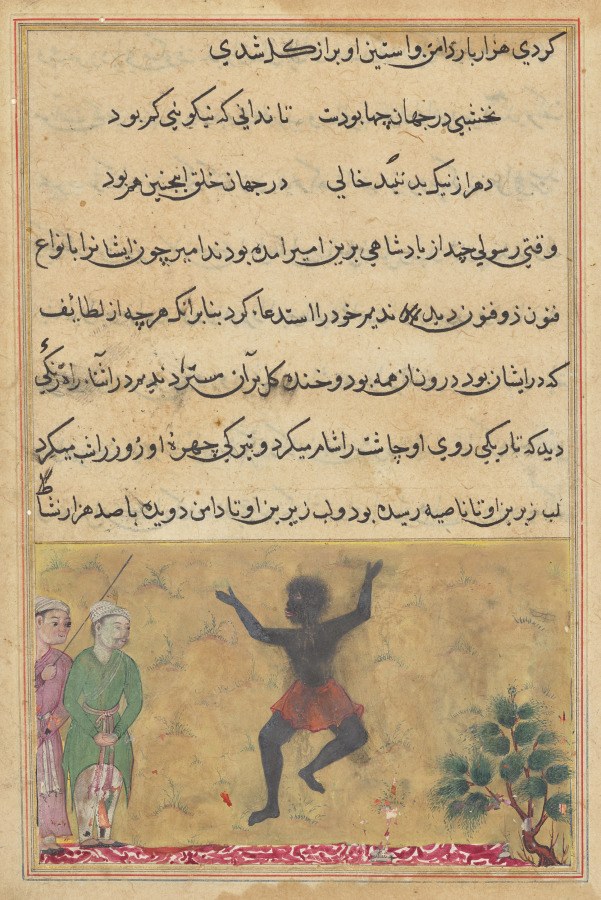 کردی هزار بار دامن و استین او بر از کل شدی
نخشبی در جهان چها بودت تا ندانی که نیکوئی کم بود
دهر از نیک بد نبد خالی در جهان خلق اینچنین هم بود
وقتی رسولی چند از بادشاهی برین امیر امده بودند امیر چون ایشانرا با نواع
فنون ذوفنون دید ندیم خود را استدعا کرد بنابرانکه هرچه از لطایف
که در ایشان بود در و نان همه بود و خنده کل بر آن مستزاد ندیم در اثنا راه زنکی
دید که تاریکی روی او چاشت را شام میکرد و تیرکی چهره او روز را شب میکرد
لب زبرین او تا ناصیه رسیده بود و لب زیرین او تا دامن دویده با صد هزار نشاط